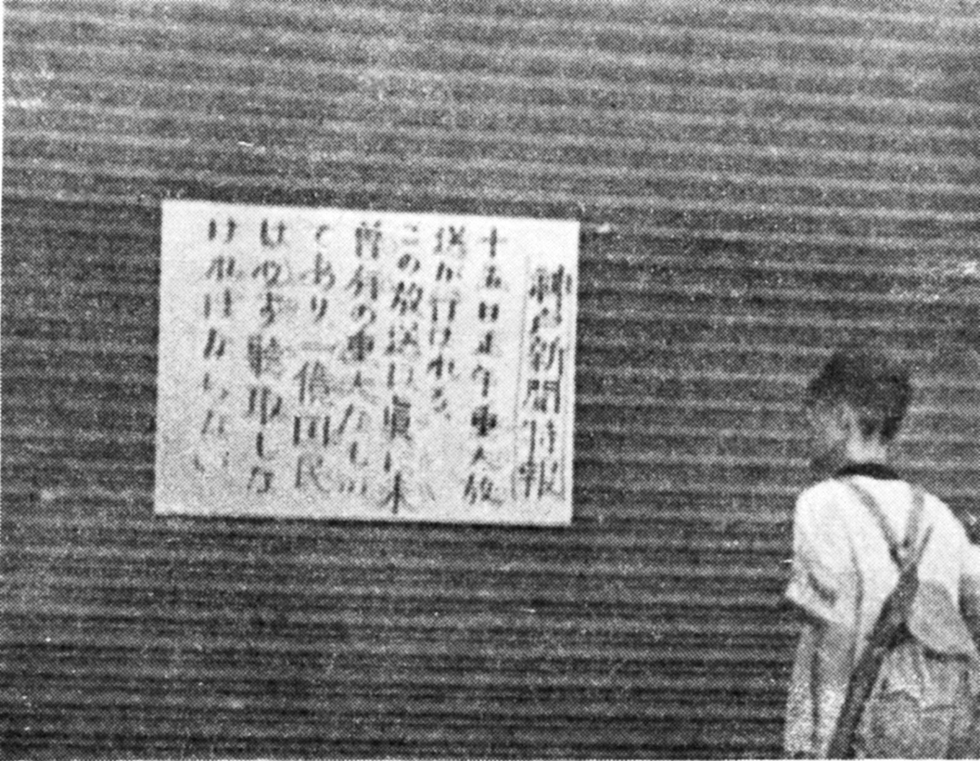 神戸新聞特報
十五日正午重大放
送が行はれる
この放送は眞に未
曾有の重大なもの
であり一億国民
は必ず聴取しな
ければならない